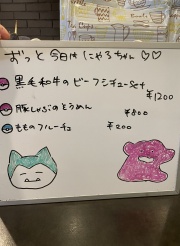 おっと今日は にゃろちゃん♡♡
黒毛和牛のビーフシチューset
¥1200
豚しゃぶのとうめん
¥800
もものフルーチェ
¥200